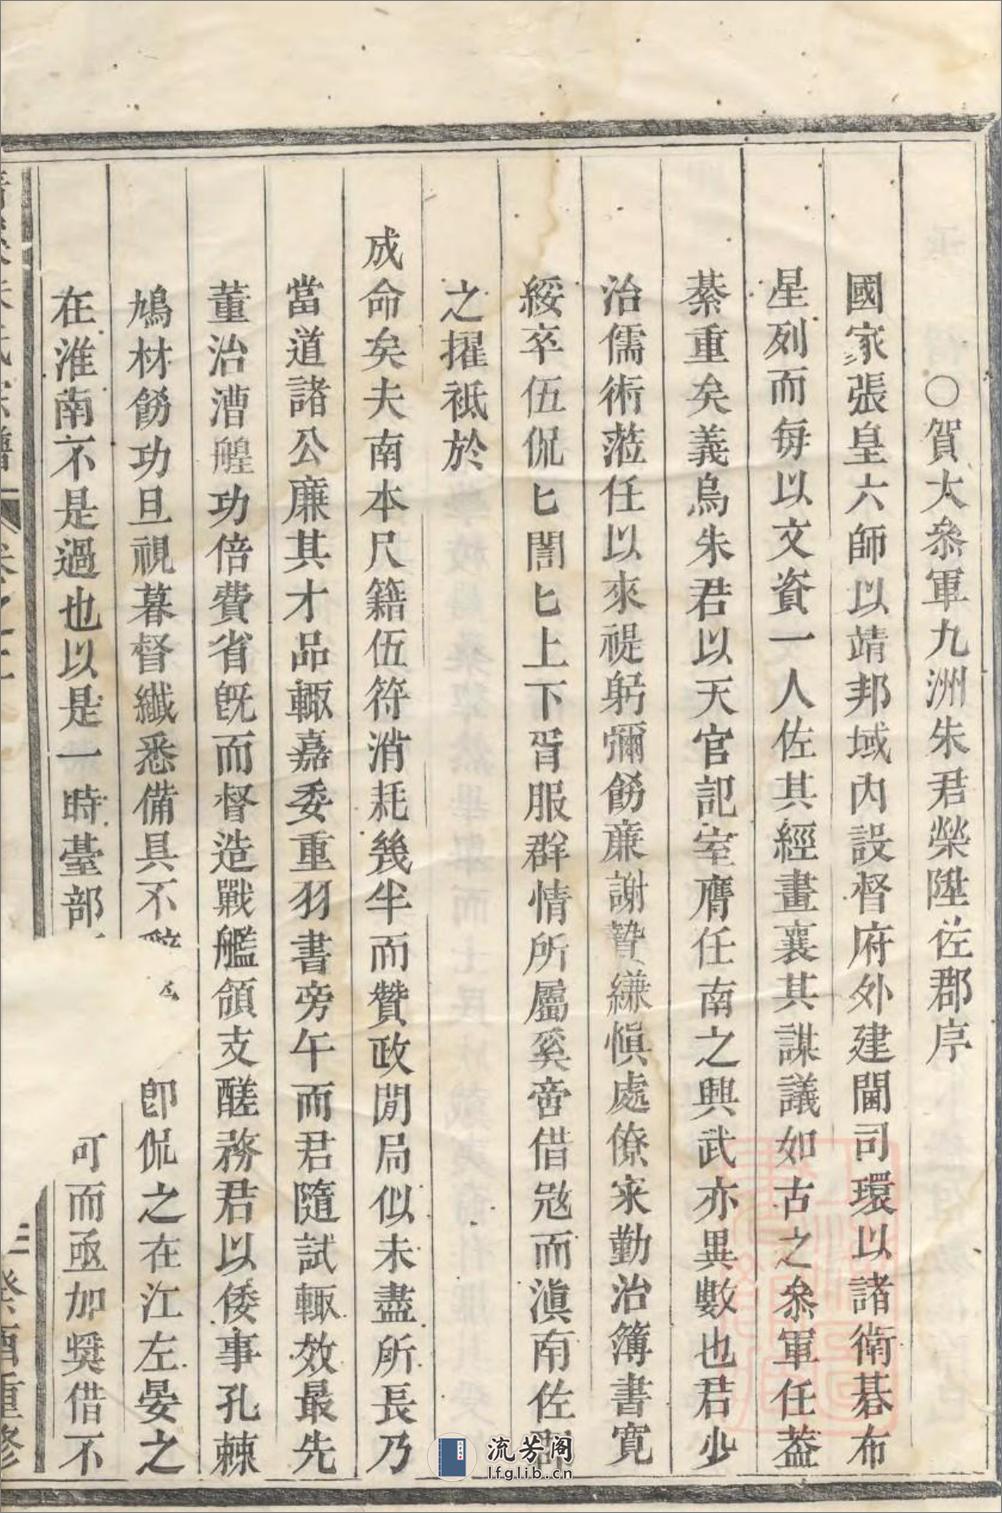 ○賀大叅軍九洲朱君榮陞佐郡序
國家張皇六師以靖邦域內設督府外建閫司環以諸衛碁布
星列而每以文資一人佐其經畫襄其謀議如古之叅軍任葢
綦重矣義烏朱君以天官記室膺任南之興武亦異數也君少
治儒術蒞任以來禔躬彌飭廉謝贄縑愼處僚寀勤治簿書寬
綏卒伍侃匕誾匕上下胥服群情所屬奚啻借冦而滇南佐
之擢祗於
成命矣夫南本尺籍伍符消耗幾半而贊政閒局似未盡所長乃
當道諸公廉其才品輙嘉委重羽書旁午而君隨試輙效最先
董治漕艎功倍費省旣而督造戰艦領支醝務君以倭事孔棘
鳩材飭功旦視暮督纖悉備具不 卽侃之在江左晏之
在淮南不是過也以是一時臺部 可而亟加奬借不
三 癸酉重修
流芳阁
lfglib.cn